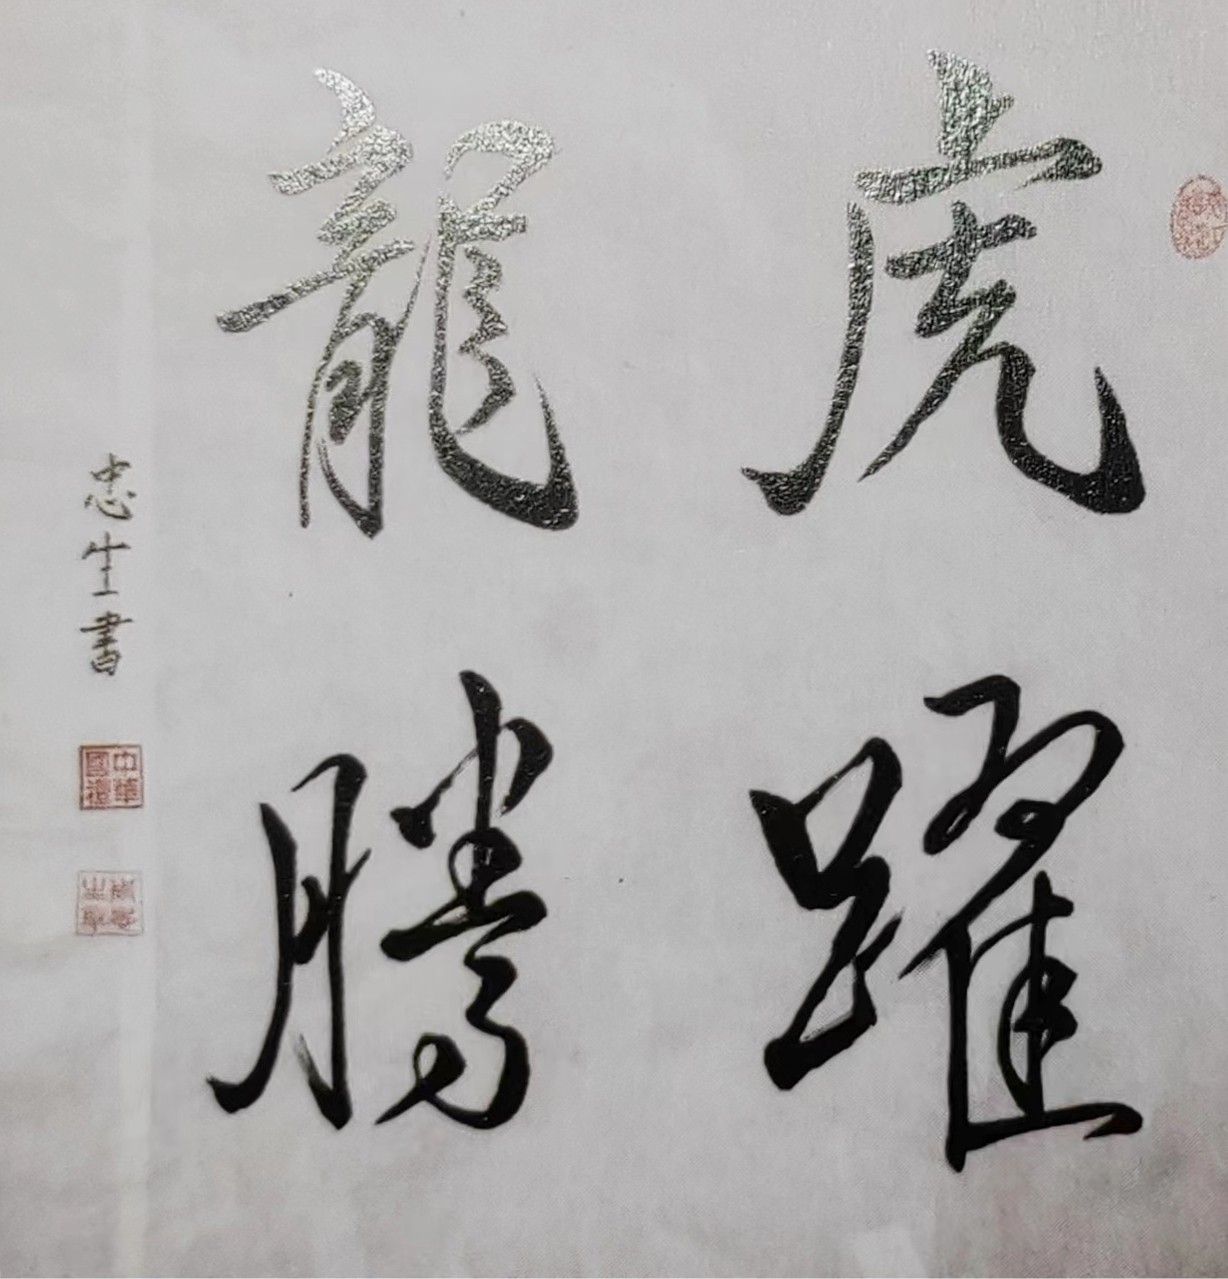 虎躍
龍騰
忠生書
中華國禮